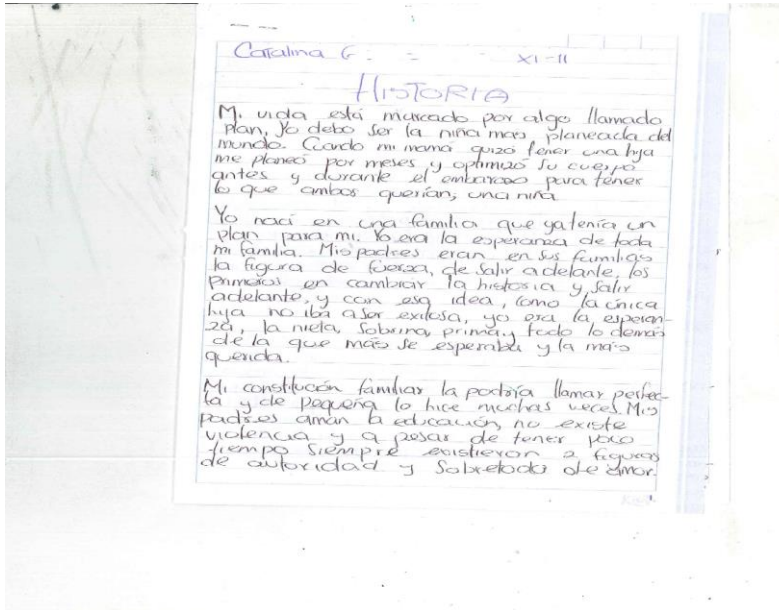 Catalina G. XI-11
HISTORIA
Mi vida está marcado por algo llamado
plan, Yo debo ser la niña mas planeada del
mundo. Cuando mi mamá quizó tener una hija
me planeó por meses y optimizó su cuerpo
antes y durante el embarazo para tener
lo que ambos querían, una niña
Yo nací en una familia que ya tenía un
plan para mi. Yo era la esperanza de toda
mi familia. Mis padres eran en sus familias
la figura de fuerza, de salir adelante, los
primeros en cambiar la historia y salir
adelante, y con esa idea, como la única
hija no iba a ser exitosa, yo era la esperan-
za, la nieta, sobrina, prima y todo lo demás
de la que más se esperaba y la más
querida.
Mi constitución familiar la podría llamar perfec-
ta y de pequeña lo hice muchas veces. Mis
padres aman la educación, no existe
violencia y a pesar de tener poco
tiempo siempre existieron 2 figuras
de autoridad y sobretodo de amor.